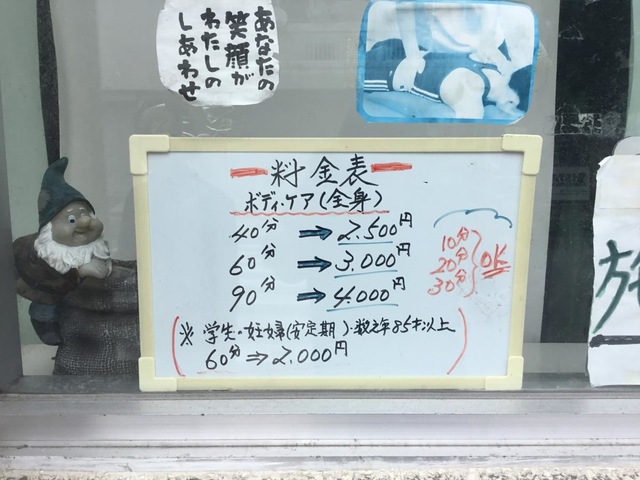 あなたの
笑顔が
わたしの
しあわせ
料金表
ボディ・ケア(全身)
40分 ➡ 2.500円
60分 ➡ 3.000円
90分 ➡ 4.000円
10分
20分
30分
OK
※ 学生・妊婦(安定期)・数え年85才以上
60分 ⇒ 2.000円